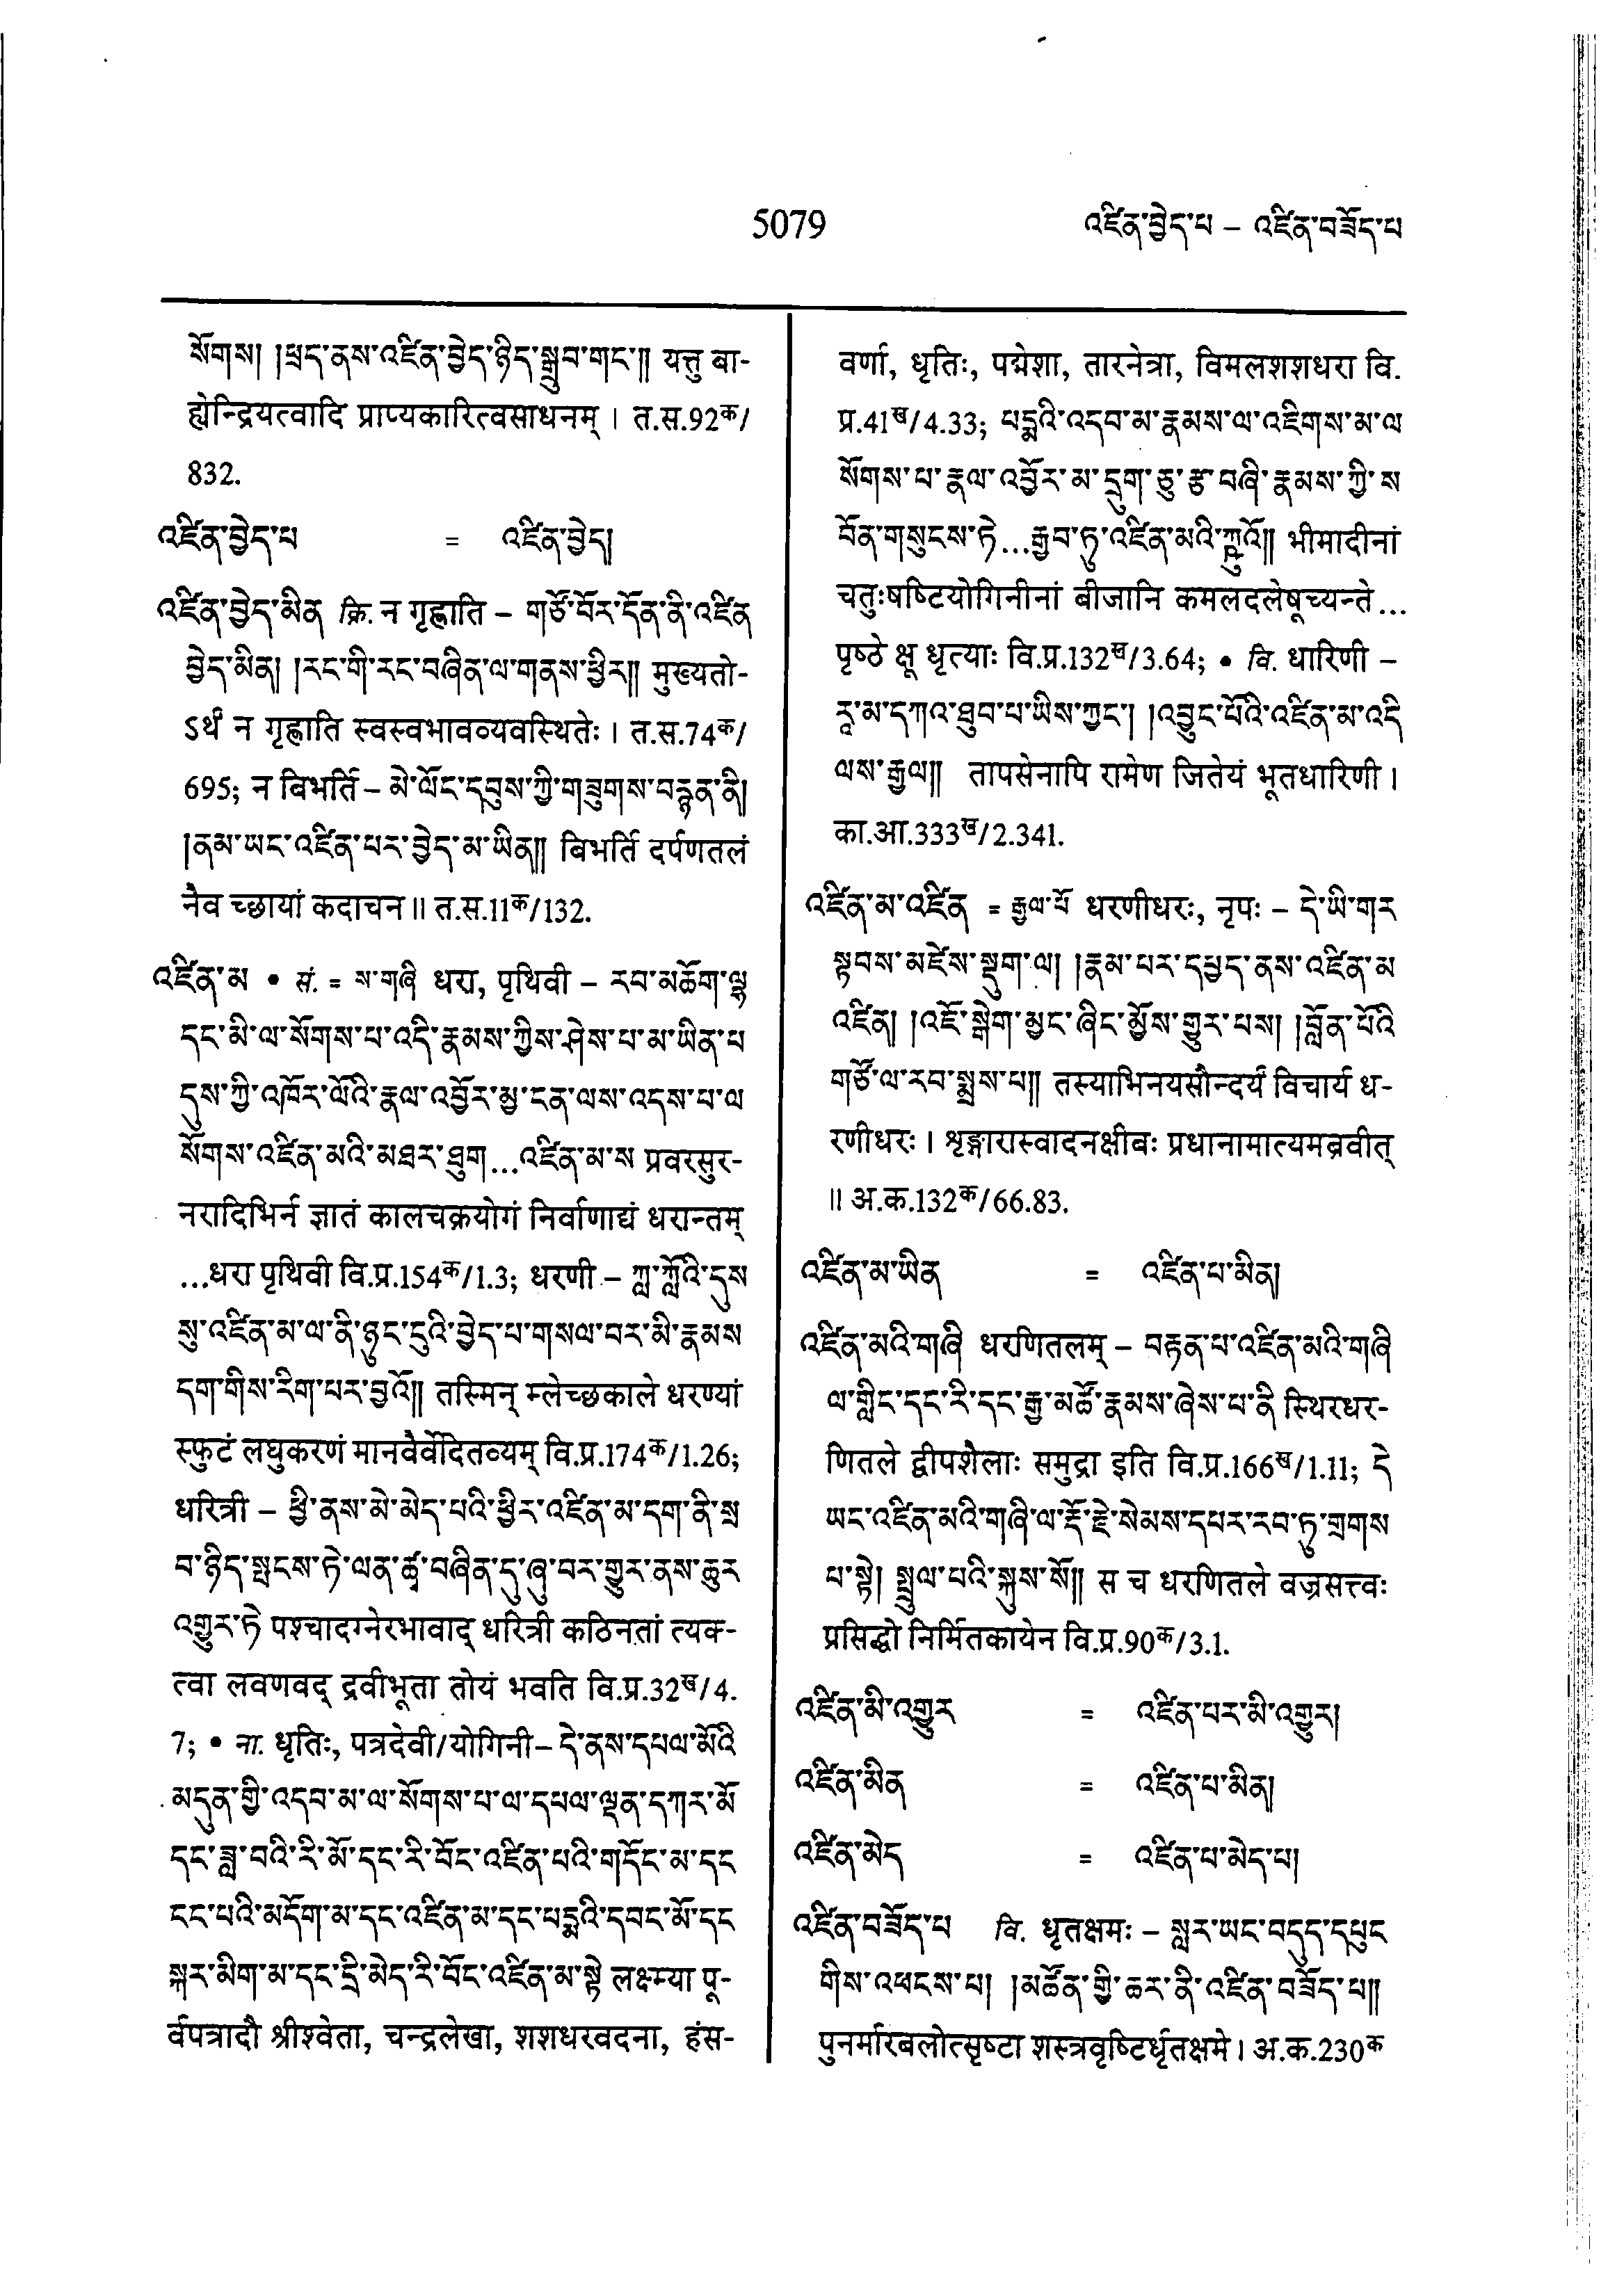 5079
འཛིན་བྱེད་པ – འཛིན་བཟོད་པ
སོགས། །ཕྲད་ནས་འཛིན་བྱེད་ཉིད་སྒྲུབ་གང་༎ यत्तु बा-
ह्येन्द्रियत्वादि प्राप्यकारित्वसाधनम् । त.स.92क/
832.
འཛིན་བྱེད་པ = འཛིན་བྱེད།
འཛིན་བྱེད་མིན क्रि. न गृह्णाति – གཙོ་བོར་དོན་ནི་འཛིན
བྱེད་མིན། །རང་གི་རང་བཞིན་ལ་གནས་ཕྱིར༎ मुख्यतो-
ऽर्थं न गृह्णाति स्वस्वभावव्यवस्थितेः । त.स.74क/
695; न बिभर्ति – མེ་ལོང་དབུས་ཀྱི་གཟུགས་བརྙན་ནི།
།ནམ་ཡང་འཛིན་པར་བྱེད་མ་ཡིན༎ बिभर्ति दर्पणतलं
नैव च्छायां कदाचन ॥ त.स.11क/132.
འཛིན་མ • सं. = ས་གཞི धरा, पृथिवी – རབ་མཆོག་ལྷ
དང་མི་ལ་སོགས་པ་འདི་རྣམས་ཀྱིས་ཤེས་པ་མ་ཡིན་པ
དུས་ཀྱི་འཁོར་ལོའི་རྣལ་འབྱོར་མྱ་ངན་ལས་འདས་པ་ལ
སོགས་འཛིན་མའི་མཐར་ཐུག...འཛིན་མ་ས प्रवरसुर-
नरादिभिर्न ज्ञातं कालचक्रयोगं निर्वाणाद्यं धरान्तम्
...धरा पृथिवी वि.प्र.154क/1.3; धरणी – ཀླ་ཀློའི་དུས
སུ་འཛིན་མ་ལ་ནི་ཉུང་ངུའི་བྱེད་པ་གསལ་བར་མི་རྣམས
དག་གིས་རིག་པར་བྱའོ༎ तस्मिन् म्लेच्छकाले धरण्यां
स्फुटं लघुकरणं मानवैर्वेदितव्यम् वि.प्र.174क/1.26;
धरित्री – ཕྱི་ནས་མེ་མེད་པའི་ཕྱིར་འཛིན་མ་དག་ནི་སྲ
བ་ཉིད་སྤངས་ཏེ་ལན་ཚྭ་བཞིན་དུ་ཞུ་བར་གྱུར་ནས་ཆུར
འགྱུར་ཏེ पश्चादग्नेरभावाद् धरित्री कठिनतां त्यक-
त्वा लवणवद् द्रवीभूता तोयं भवति वि.प्र.32ख/4.
7; • ना. धृतिः, पत्रदेवी/योगिनी – དེ་ནས་དཔལ་མོའི
མདུན་གྱི་འདབ་མ་ལ་སོགས་པ་ལ་དཔལ་ལྡན་དཀར་མོ
དང་ཟླ་བའི་རི་མོ་དང་རི་བོང་འཛིན་པའི་གདོང་མ་དང
ངང་པའི་མདོག་མ་དང་འཛིན་མ་དང་པདྨའི་དབང་མོ་དང
སྐར་མིག་མ་དང་དྲི་མེད་རི་བོང་འཛིན་མ་སྟེ लक्ष्म्या पू-
र्वपत्रादौ श्रीश्वेता, चन्द्रलेखा, शशधरवदना, हंस-
वर्णा, धृतिः, पद्मेशा, तारनेत्रा, विमलशशधरा वि.
प्र.41ख/4.33; པདྨའི་འདབ་མ་རྣམས་ལ་འཇིགས་མ་ལ
སོགས་པ་རྣལ་འབྱོར་མ་དྲུག་ཅུ་རྩ་བཞི་རྣམས་ཀྱི་ས
བོན་གསུངས་ཏེ...རྒྱབ་ཏུ་འཛིན་མའི་ཀྵཱུའོ༎ भीमादीनां
चतुःषष्टियोगिनीनां बीजानि कमलदलेषूच्यन्ते...
पृष्ठे क्षू धृत्याः वि.प्र.132ख/3.64; • वि. धारिणी –
རཱ་མ་དཀའ་ཐུབ་པ་ཡིས་ཀྱང་། །འབྱུང་པོའི་འཛིན་མ་འདི
ལས་རྒྱལ༎ तापसेनापि रामेण जितेयं भूतधारिणी ।
का.आ.333ख/2.341.
འཛིན་མ་འཛིན = རྒྱལ་པོ धरणीधरः, नृपः – དེ་ཡི་གར
སྟབས་མཛེས་སྡུག་ལ། །རྣམ་པར་དཔྱད་ནས་འཛིན་མ
འཛིན། །འཇོ་སྒེག་མྱང་ཞིང་མྱོས་གྱུར་པས། །བློན་པོའི
གཙོ་ལ་རབ་སྨྲས་པ༎ तस्याभिनयसौन्दर्यं विचार्य ध-
रणीधरः । शृङ्गारास्वादनक्षीबः प्रधानामात्यमब्रवीत्
॥ अ.क.132क/66.83.
འཛིན་མ་ཡིན = འཛིན་པ་མིན།
འཛིན་མའི་གཞི धरणितलम् – བརྟན་པ་འཛིན་མའི་གཞི
ལ་གླིང་དང་རི་དང་རྒྱ་མཚོ་རྣམས་ཞེས་པ་ནི स्थिरधर-
णितले द्वीपशैलाः समुद्रा इति वि.प्र.166ख/1.11; དེ
ཡང་འཛིན་མའི་གཞི་ལ་རྡོ་རྗེ་སེམས་དཔར་རབ་ཏུ་གྲགས
པ་སྟེ། སྤྲུལ་པའི་སྐུས་སོ༎ स च धरणितले वज्रसत्त्वः
प्रसिद्धो निर्मितकायेन वि.प्र.90क/3.1.
འཛིན་མི་འགྱུར = འཛིན་པར་མི་འགྱུར།
འཛིན་མིན = འཛིན་པ་མིན།
འཛིན་མེད = འཛིན་པ་མེད་པ།
འཛིན་བཟོད་པ वि. धृतक्षमः – སླར་ཡང་བདུད་དཔུང
གིས་འཕངས་པ། །མཚོན་གྱི་ཆར་ནི་འཛིན་བཟོད་པ༎
पुनर्मारबलोत्सृष्टा शस्त्रवृष्टिर्धृतक्षमे । अ.क.230क